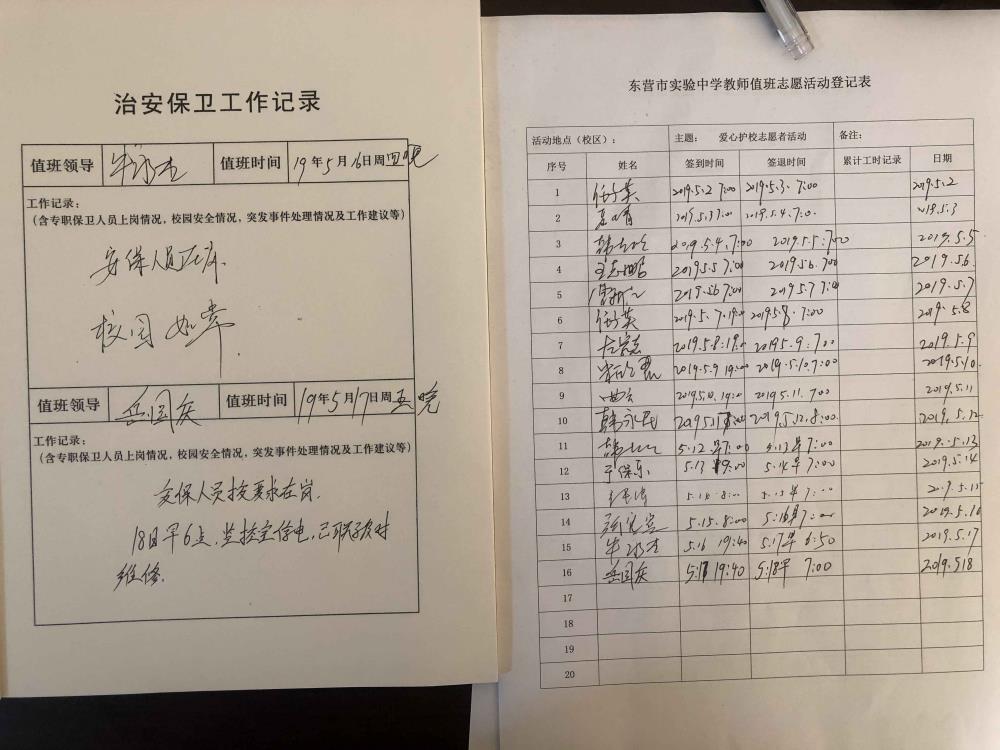 治安保卫工作记录
值班领导 牛永杰 值班时间 19年5月16日周四晚
工作记录:
(含专职保卫人员上岗情况,校园安全情况,突发事件处理情况及工作建议等)
安保人员在岗.
校园如常
值班领导 岳国庆 值班时间 19年5月17日周五晚
工作记录:
(含专职保卫人员上岗情况,校园安全情况,突发事件处理情况及工作建议等)
安保人员按要求在岗.
18日早6点,监控室停电,已联系及时
维修.
东营市实验中学教师值班志愿活动登记表
活动地点(校区): 主题: 爱心护校志愿者活动 备注:
序号 姓名 签到时间 签退时间 累计工时记录 日期
1 2019.5.2 7:00 2019.5.3. 7:00 2019.5.2
2 2019.5.3 7:00 2019.5.4.7:0. 2019.5.3
3 2019.5.4.7:00 2019.5.5.7:00 2019.5.5
4 2019.5.5 7:00 2019.5.6. 7:00 2019.5.6
5 2019.5.6 7:00 2019.5.7 7:00 2019.5.7
6 2019.5.7.19:00 2019.5.8. 7:00 2019.5.8
7 2019.5.8:19:0 2019.5.9:7:00 2019.5.9
8 2019.5.9 19:00 2019.5.10.7:00 2019.5.10.
9 2019.5.10.19:00 2019.5.11.7:00 2019.5.11
10 韩永民 2019.5.12.8:00. 2019.5.12
11 5.12.早7:00 5.13早7:00 2019.5.13
12 于保乐 5.13 19:00 5.14早7:00 2019.5.14
13 5.14.8:00 5.15早7:00 2019.5.15
14 5.15.8:00 5.16早7:00 2019.5.16
15 牛永杰 5.16 19:40 5.17早 6:50 2019.5.17
16 岳国庆 5.17 19:40 5.18早 7:00 2019.5.18
17
18
19
20